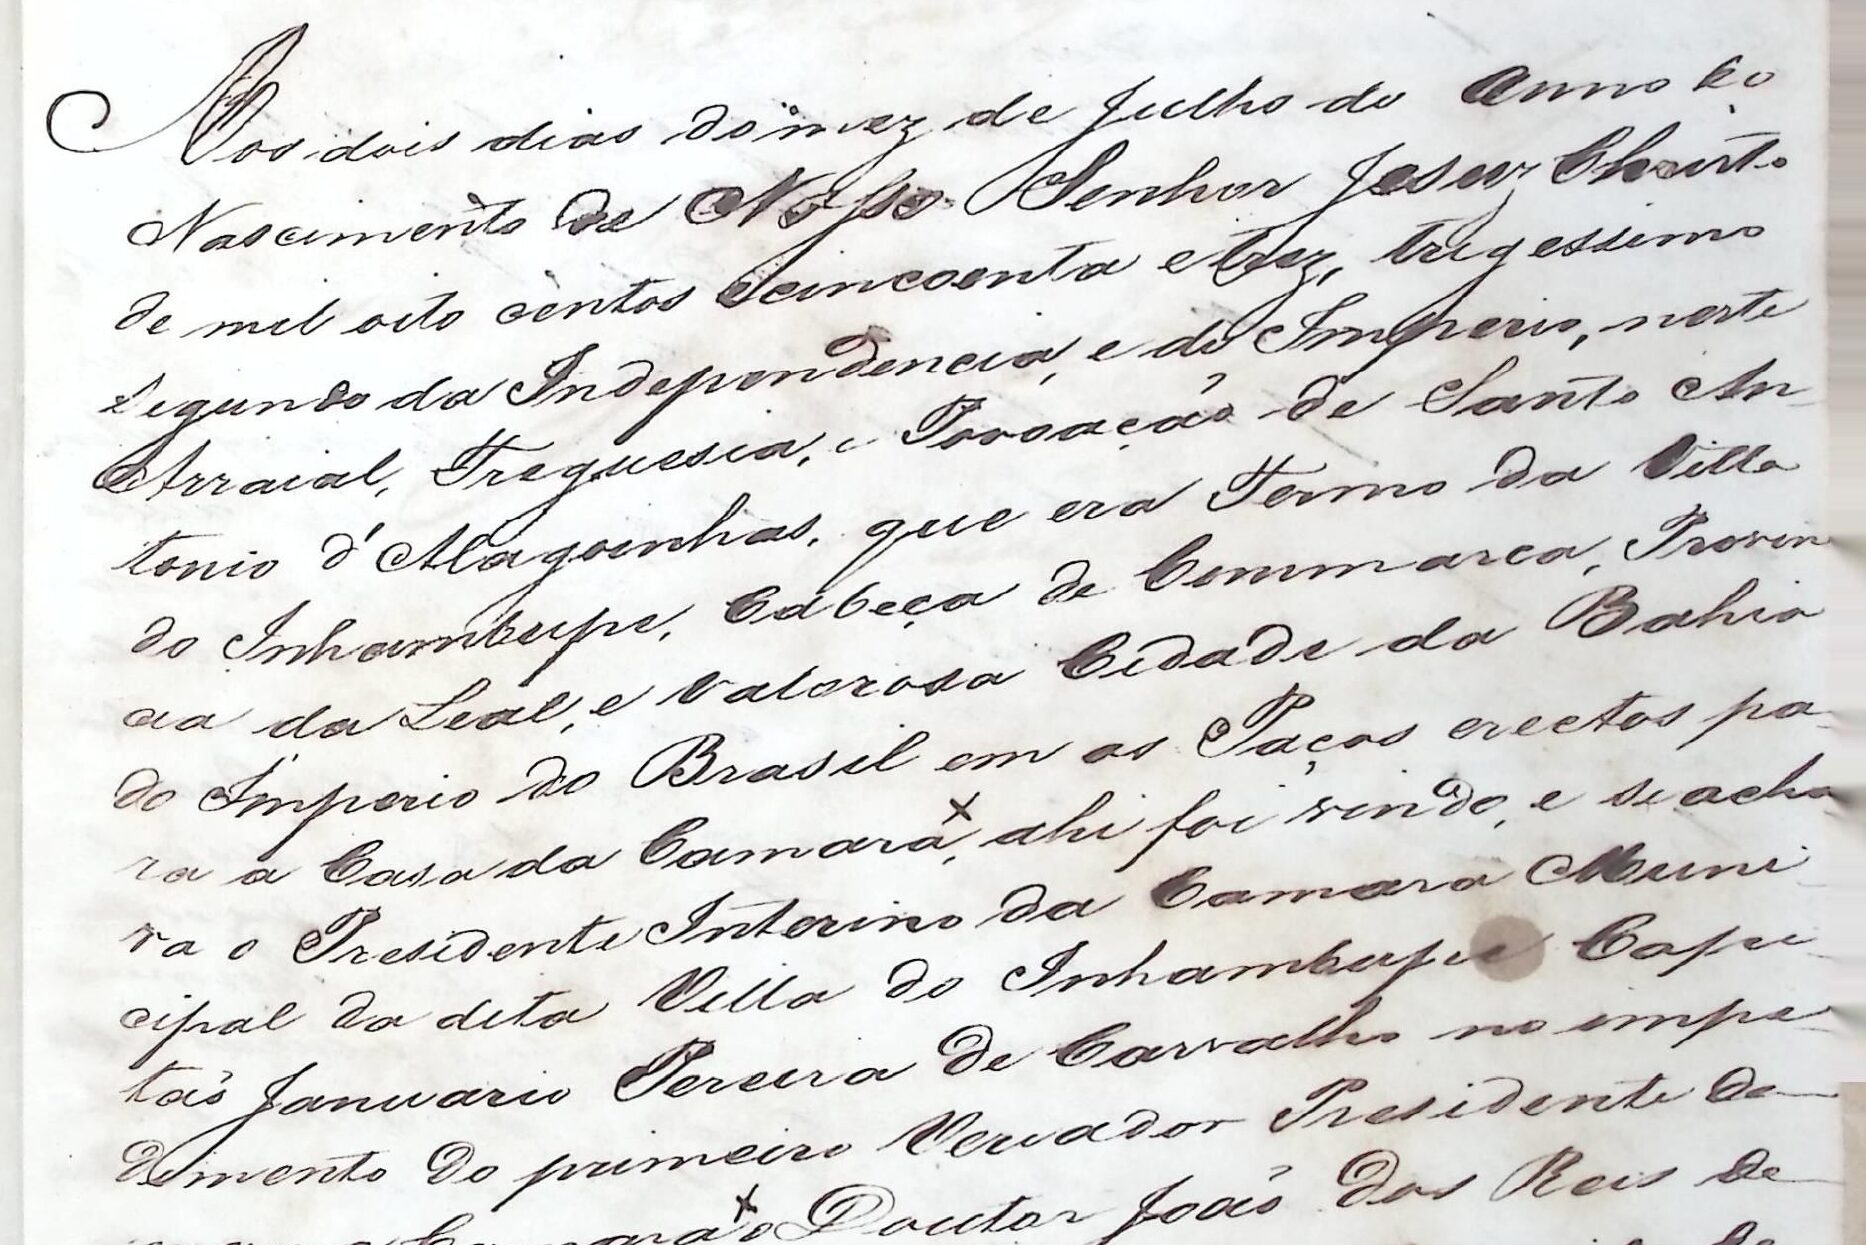 Aos dois dias do mez de Julho do Anno do
Nascimento de Nosso Senhor Jesuz Christo
de mil oito centos e cincoenta e trez, trigessimo
segundo da Independencia, e do Imperio, neste
Arraial, Freguesia, e Povoação de Santo An-
tonio d'Alagoinhas, que era Termo da Villa
do Inhambupe, Cabeça de Commarca, Provin
cia da Leal, e Valorosa Cidade da Bahia
do Imperio do Brasil em os Paços erectos pa-
ra a Casa da Camara, ahi foi vindo, e se acha
va o Presidente Interino da Camara Muni-
cipal da dita Villa do Inhambupe Capi-
tão Januario Pereira de Carvalho no impe-
dimento do primeiro Vereador Presidente da
Camara o Doutor João dos Reis de